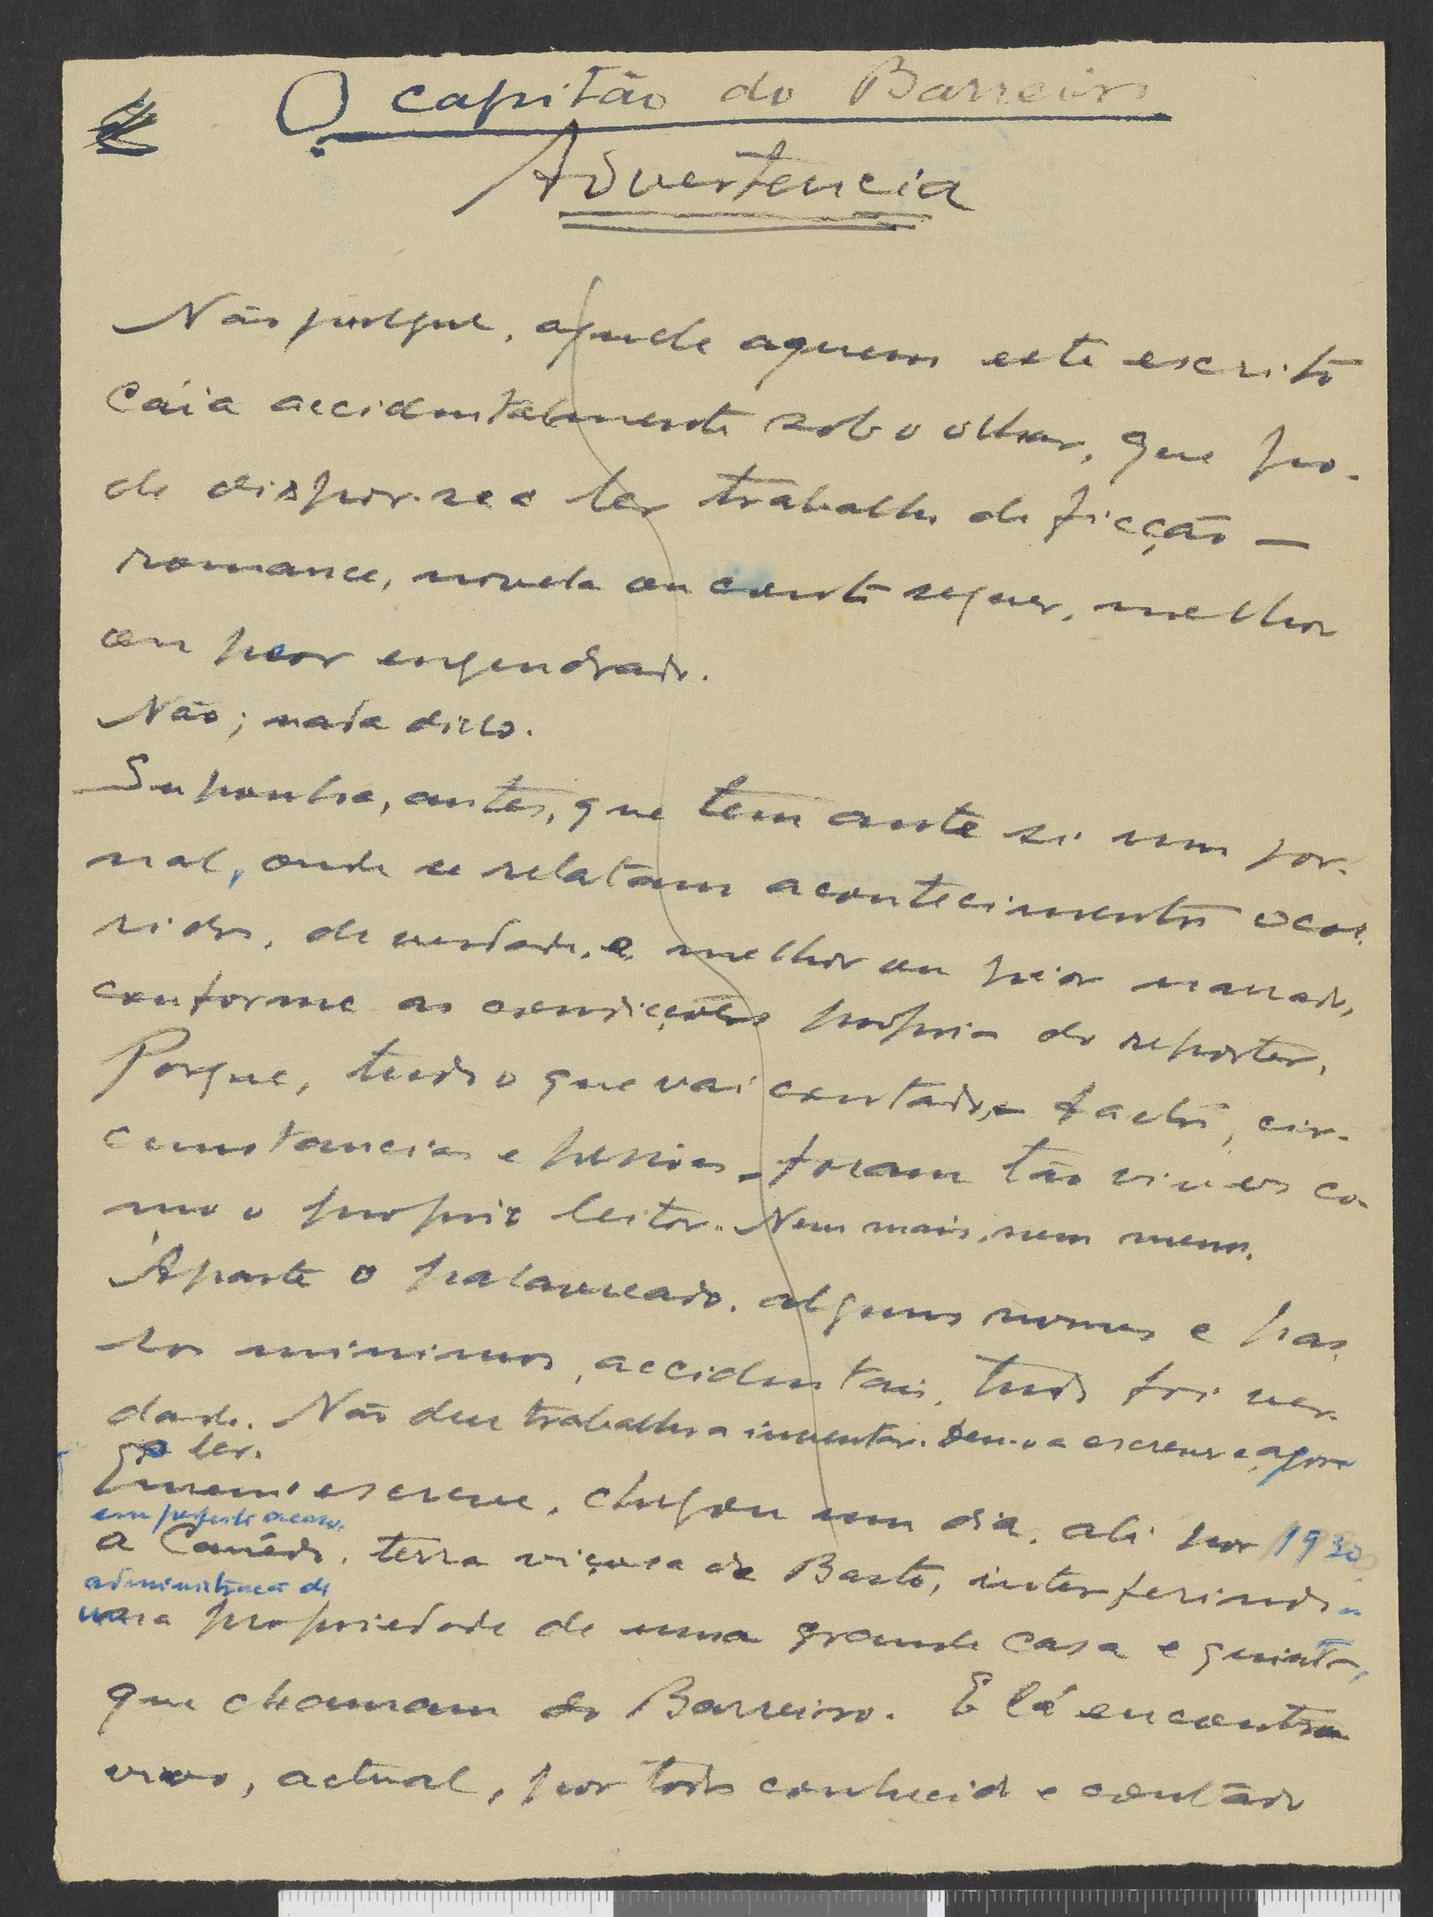 O capitão do Barreiro
Advertencia
Não julgue, aquele a quem este escrito
cáia accidentalmente sob o olhar, que po-
de dispor-se a ler trabalho de ficção —
romance, novela ou conto sequer, melhor
ou peor engendrado.
Não; nada disto.
Suponha, antes, que tem ante si um jor-
nal, onde se relatam acontecimentos ocor-
ridos, de verdade, e melhor ou peior narrado,
conforme as condicções proprias do reporter.
Porque, tudo o que vai contado, factos, cir-
cunstancias e pessoas - foram tão vivos co-
mo o proprio leitor. Nem mais, nem menos.
Áparte o palavreado, alguns nomes e pas-
sos minimos, accidentais, tudo foi ver-
dade. Não deu trabalho a inventar. Deu-o a escrever e, agora
a ler.
Quem escreve, chegou um dia, ali por 1930
em perfeito acaso,
a Canêdo, terra viçosa de Basto, interferindo na
administração de
uma propriedade de uma grande casa e quinta,
que chamam do Barreiro. E lá encontrou
vivo, actual, por todos conhecido e contado